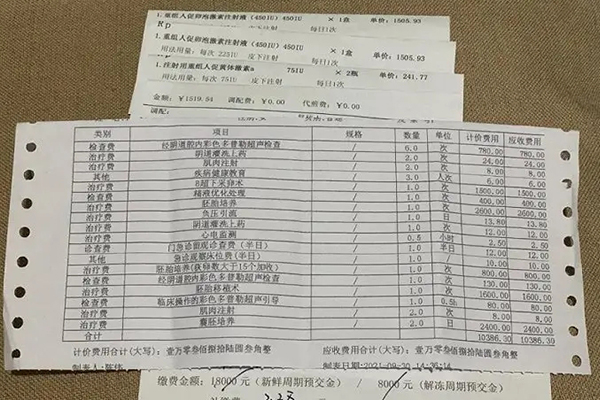 1.重组人促卵泡激素注射液(450IU)450IU ×1盒 单价:1505.93
Rp 皮下注射 每日1次
1.重组人促卵泡激素注射液(450IU)450IU ×1盒 单价:1505.93
用法用量:每次 225IU 皮下注射 每日1次
1.注射用重组人促黄体激素a 75IU ×2瓶 单价:241.77
用法用量:每次 75IU 皮下注射 每日1次
金额:¥1519.54 调配费:¥0.00 代煎费:¥0.00
调配:
类别 项目 规格 数量 单位 计价费用 应收费用
检查费 经阴道腔内彩色多普勒超声检查 / 6.0 次 780.00 780.00
治疗费 阴道灌洗上药 / 2.0 次 24.00 24.00
治疗费 肌肉注射 / 2.0 次 8.00 8.00
其他 疾病健康教育 / 3.0 人次 6.00 6.00
治疗费 B超下采卵术 / 1.0 次 1500.00 1500.00
检查费 精液优化处理 / 1.0 次 400.00 400.00
治疗费 胚胎培养 / 1.0 次 2600.00 2600.00
治疗费 负压引流 / 1.0 日 13.80 13.80
治疗费 阴道灌洗上药 / 1.0 次 12.00 12.00
治疗费 心电监测 / 0.5 小时 2.50 2.50
诊查费 门急诊留观诊查费(半日) / 1.0 半日 12.00 12.00
其他 急诊观察床位费(半日) / 1.0 / 10.00 10.00
治疗费 胚胎培养(获卵数大于15个加收) / 1.0 次 800.00 800.00
检查费 经阴道腔内彩色多普勒超声检查 / 1.0 次 130.00 130.00
治疗费 胚胎移植术 / 1.0 次 1600.00 1600.00
检查费 临床操作的彩色多普勒超声引导 / 1.0 0.5h 80.00 80.00
治疗费 肌肉注射 / 2.0 次 8.00 8.00
治疗费 囊胚培养 / 2.0 日 2400.00 2400.00
合计 10386.30 10386.30
计价费用合计(大写):壹万零叁佰捌拾陆圆叁角整 应收费用合计(大写):壹万零叁佰捌拾陆圆叁角整
制表人:陈
缴费金额:18000元(新鲜周期预交金) / 8000元(解冻周期预交金)